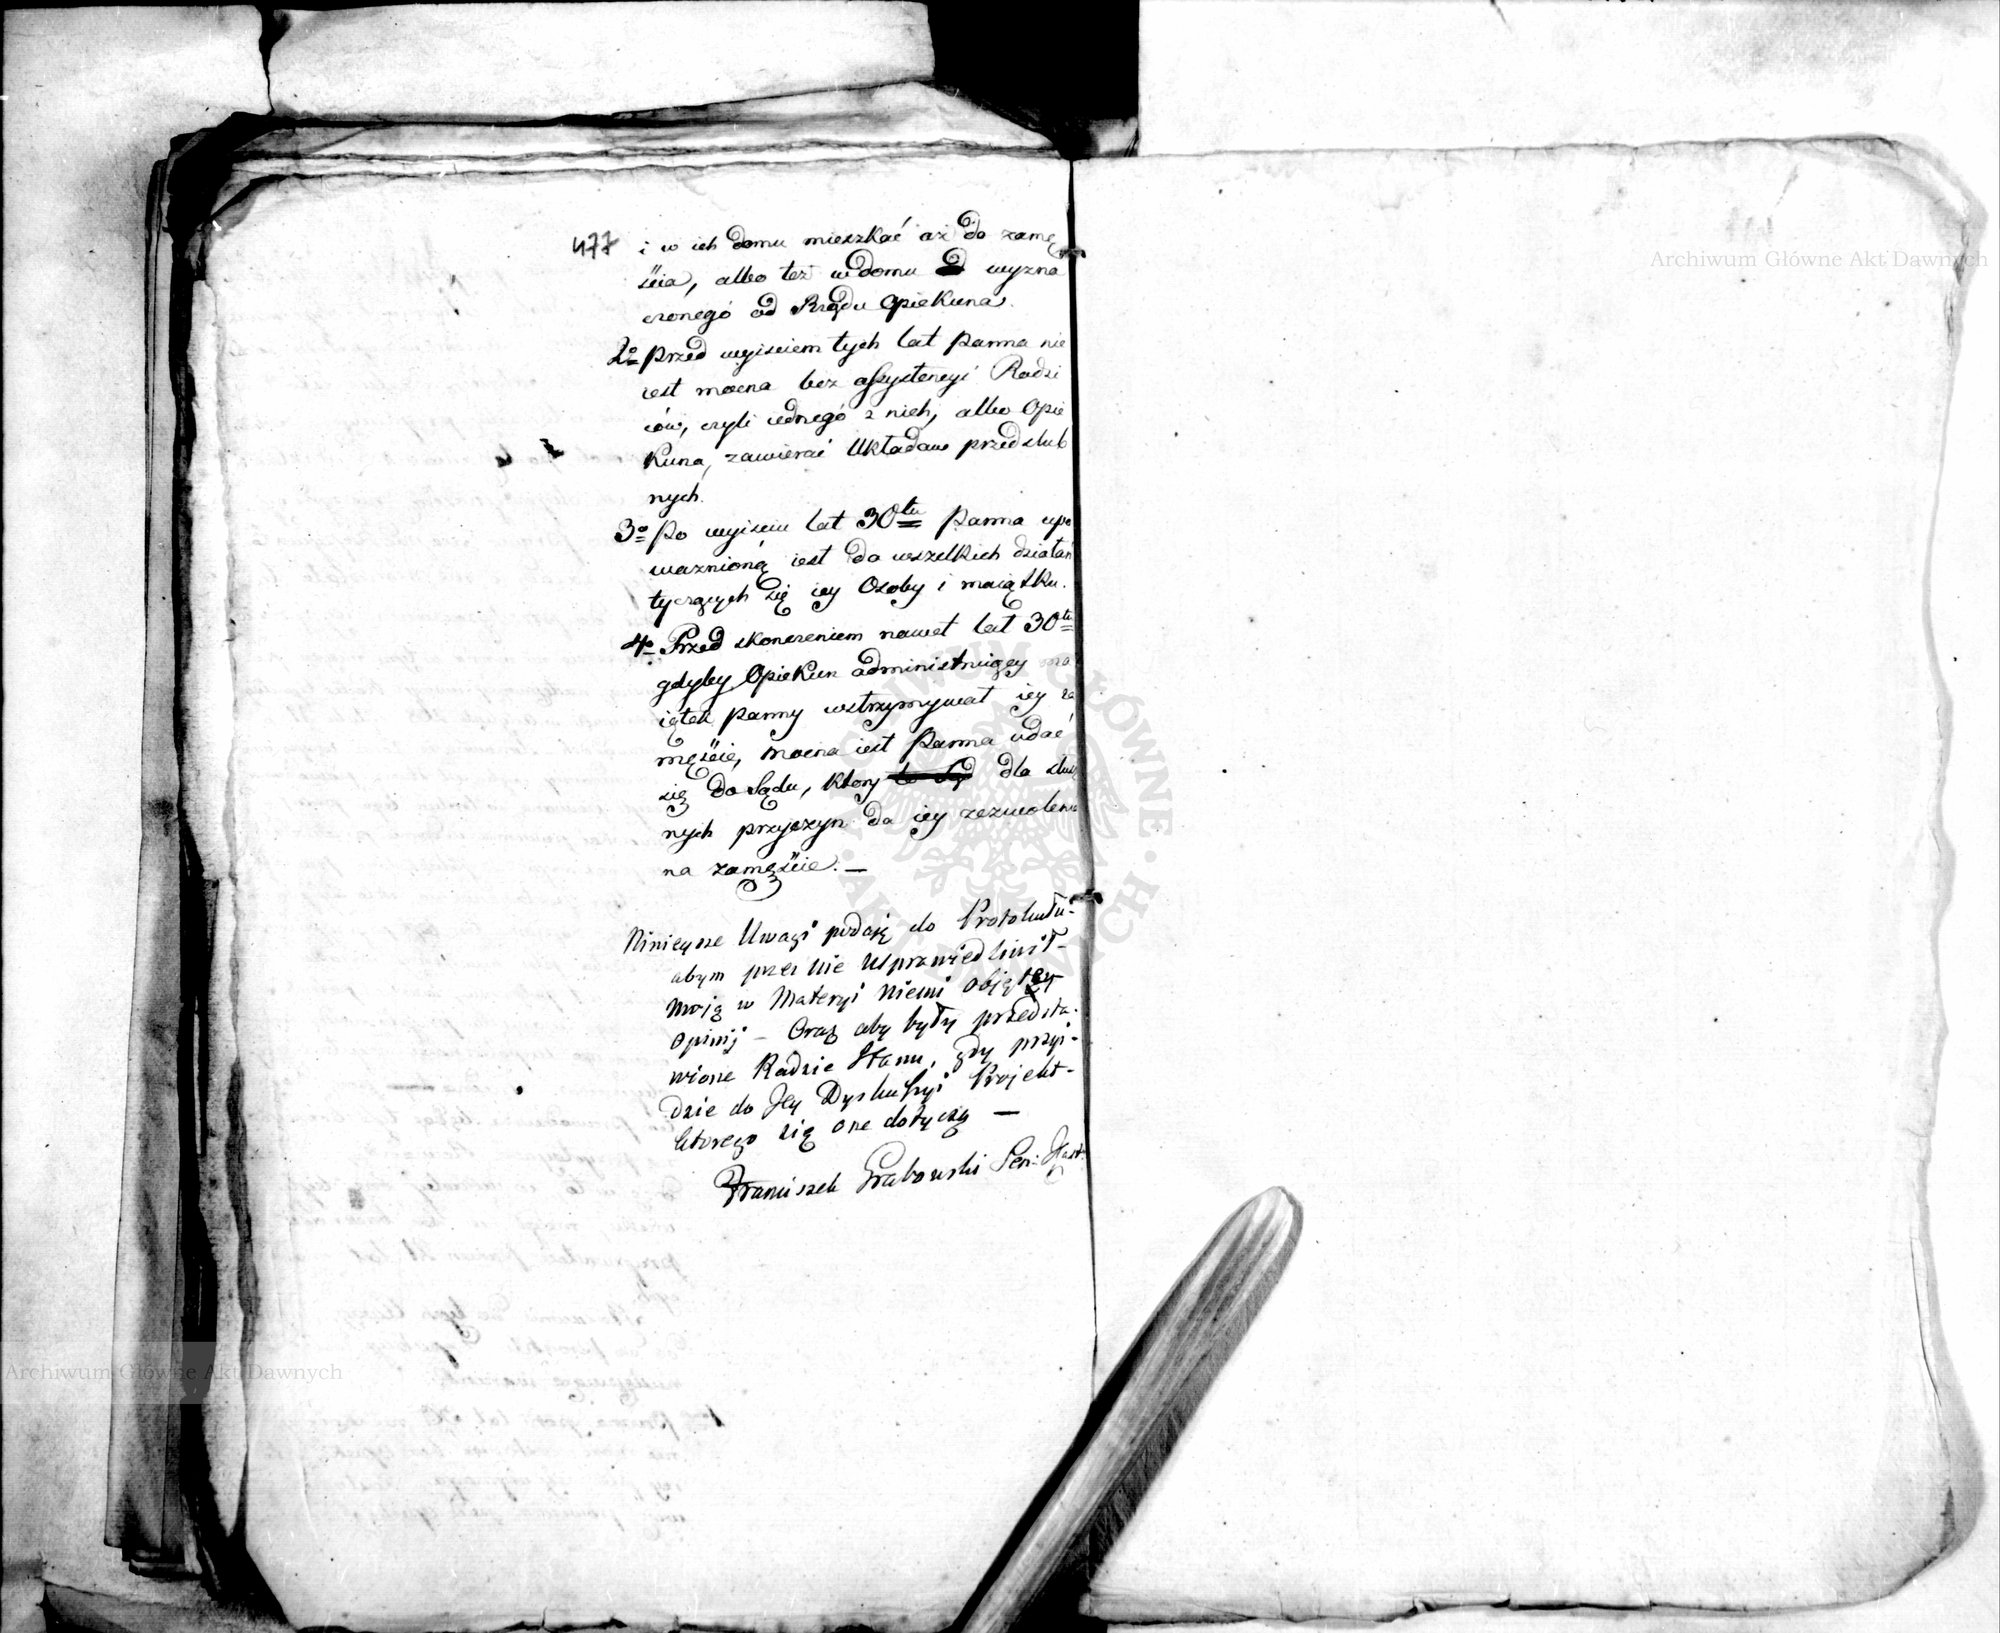 477
i w ich domu mieszkać aż do zamę
ścia, albo też w domu wyzna
czonego od Rządu Opiekuna.
2o Przed wyisciem tych lat Panna nie
iest mocna bez assystencyi Rodzi
ców, czyli iednego z nich, albo Opie
kuna, zawierać Układow przedslub
nych.
3o Po wyisciu lat 30tu Panna upo
ważnioną iest do wszelkich działań
tyczących się iey Osoby i maiątku.
4o Przed skonczeniem nawet lat 30tu
gdyby Opiekun administruiący ma
iątek Panny wstrzymywał iey za
męście, mocna iest Panna udać
się do Sądu, ktory dla słusz
nych przyczyn da iey zezwolenie
na zamęście. —
Ninieysze Uwagi podaję do Protokułu
abym przez nie usprawiedliwił
moją w Materyi niemi objętey
opinij – Oraz aby były przedsta-
wione Radzie Stanu, gdy przyi-
dzie do Jey Dyskussyi Projekt
ktorego się one dotyczą —
Franciszek Grabowski Sen: Kaszt:
Archiwum Główne Akt Dawnych
Archiwum Główne Akt Dawnych
ARCHIWUM GŁÓWNE AKT DAWNYCH